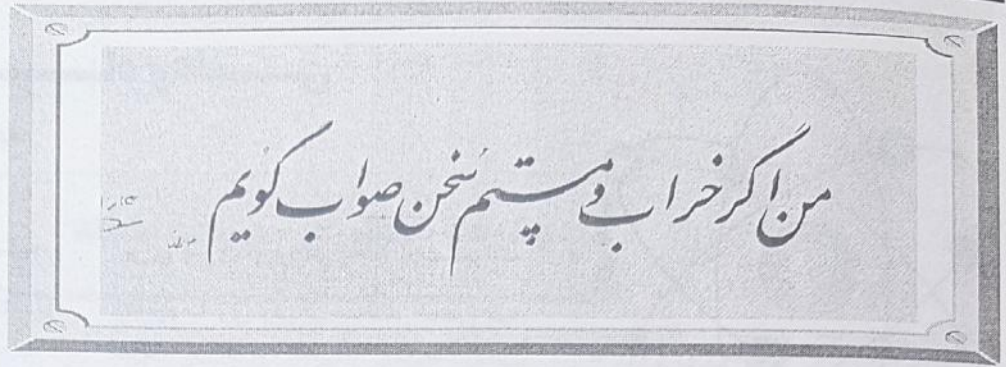 من اگر خراب و مستم سخن صواب گویم